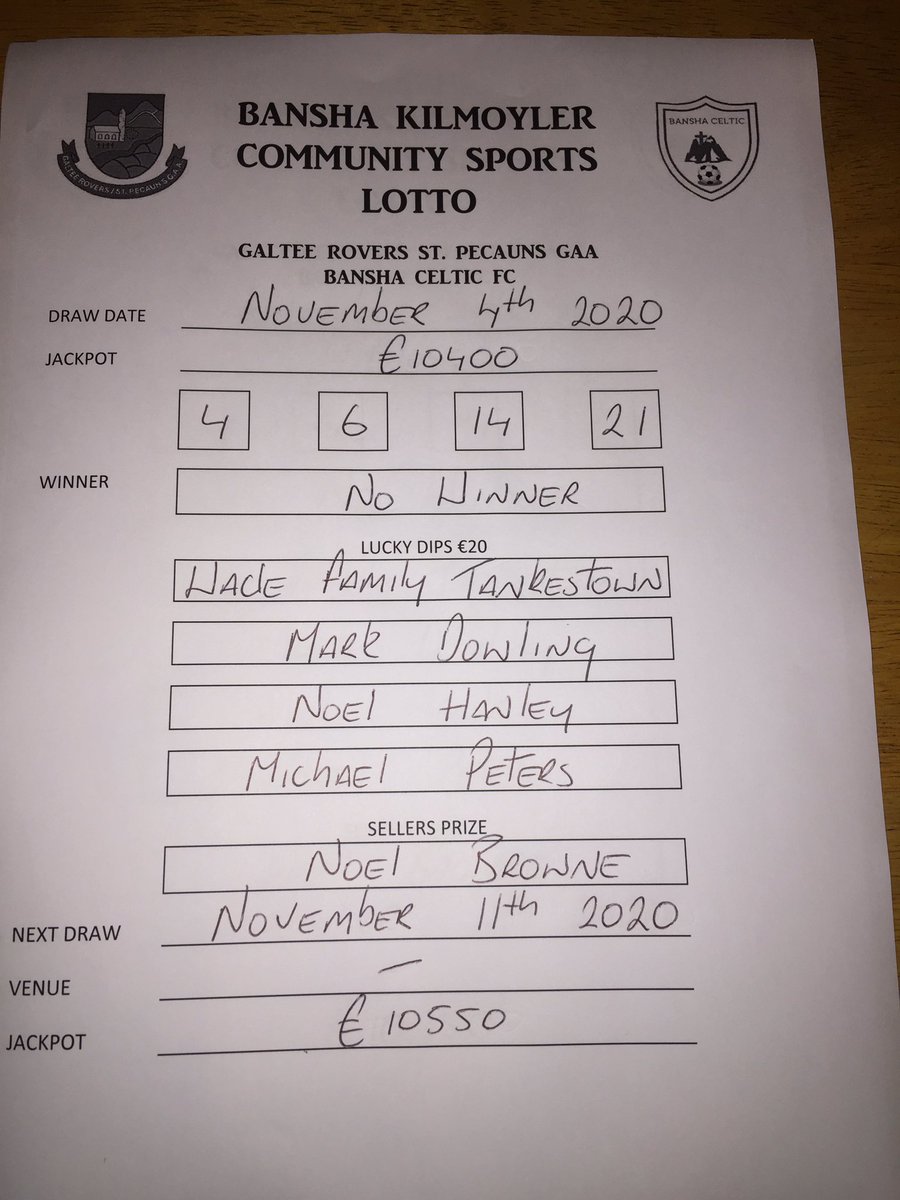 BANSHA KILMOYLER
COMMUNITY SPORTS
LOTTO
GALTEE ROVERS/ST. PECAUNS G.A.A.
BANSHA CELTIC
GALTEE ROVERS ST. PECAUNS GAA
BANSHA CELTIC FC
DRAW DATE NOVEMBER 4th 2020
JACKPOT €10400
4 6 14 21
WINNER NO WINNER
LUCKY DIPS €20
WADE FAMILY TANKESTOWN
MARK DOWLING
NOEL HANLEY
MICHAEL PETERS
SELLERS PRIZE
NOEL BROWNE
NEXT DRAW NOVEMBER 11th 2020
VENUE —
JACKPOT €10550